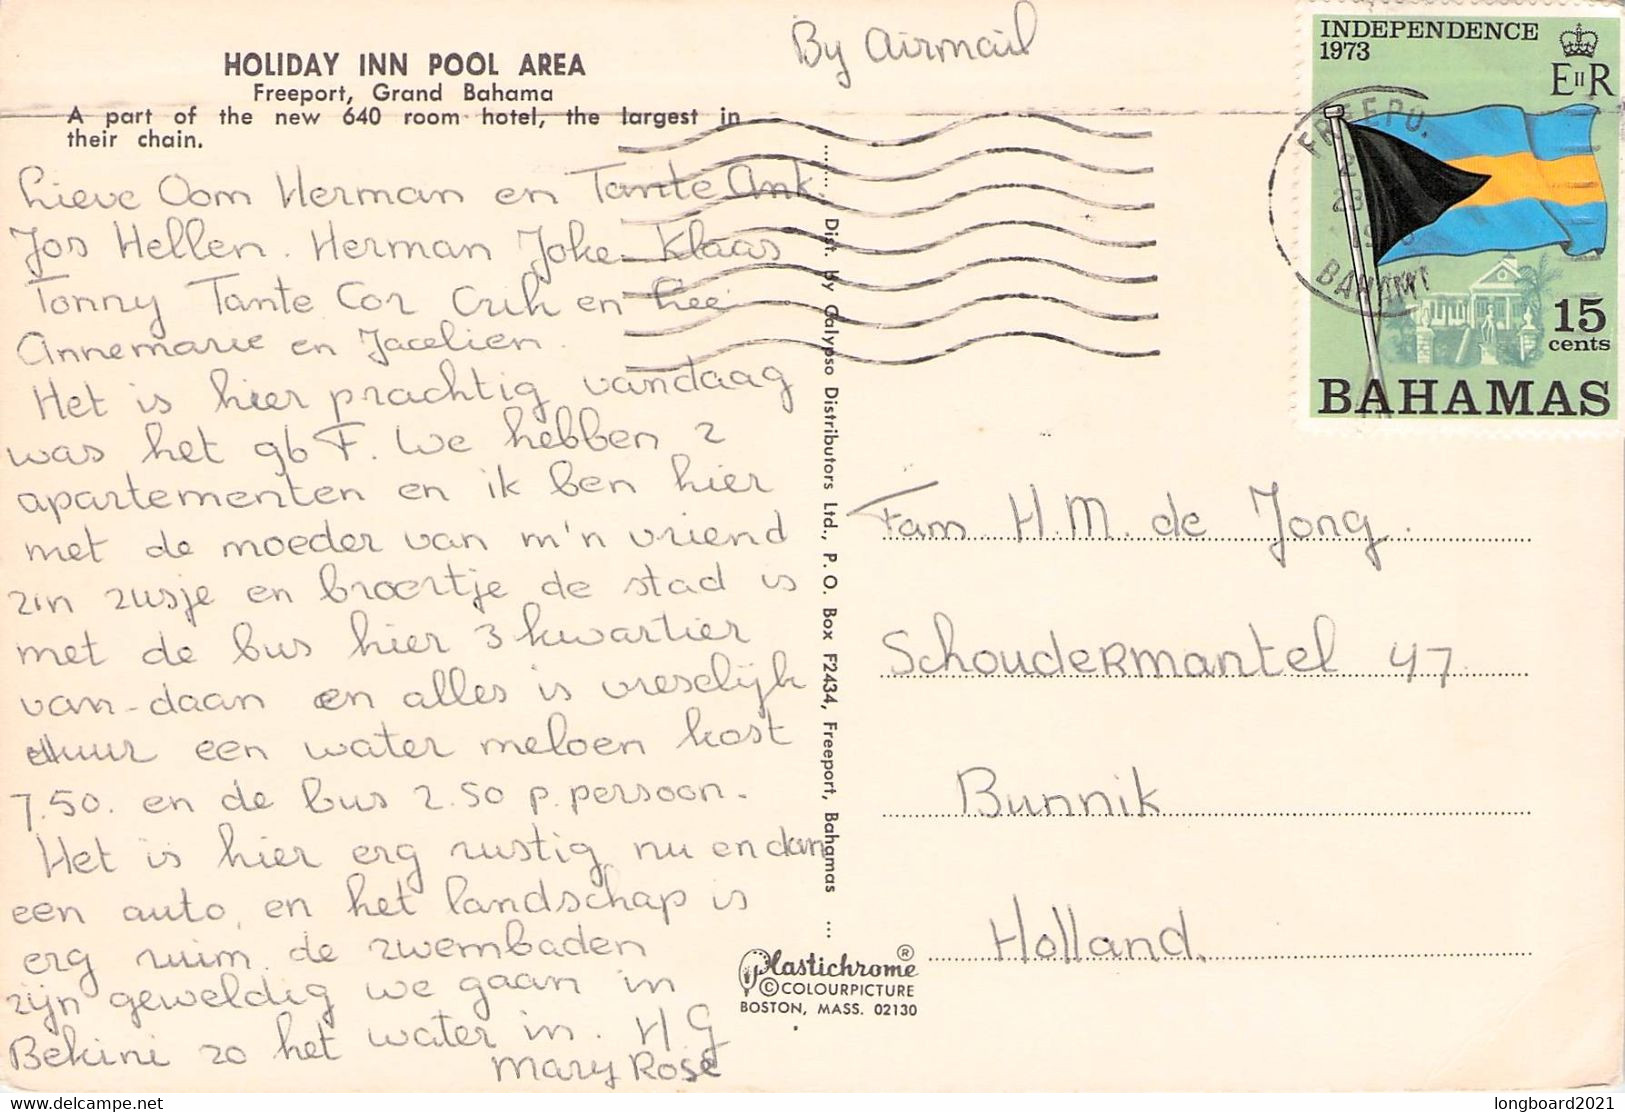 HOLIDAY INN POOL AREA
Freeport, Grand Bahama
A part of the new 640 room hotel, the largest in
their chain.
By Airmail
INDEPENDENCE
1973
E II R
15
cents
BAHAMAS
FREEPO.
BAHAM
Lieve Oom Herman en Tante Ank
Jos Hellen. Herman Joke. Klaas
Tonny Tante Cor Crih en Lee
Annemarie en Jacelien.
Het is hier prachtig vandaag
was het 96 F. We hebben 2
apartementen en ik ben hier
met de moeder van m'n vriend
zin zusje en broertje de stad is
met de bus hier 3 kwartier
van-daan en alles is vreselijk
duur een water meloen kost
7.50. en de bus 2.50 p. persoon.
Het is hier erg rustig nu en dan
een auto, en het landschap is
erg ruim de zwembaden
zijn geweldig we gaan in
Bekini zo het water in. H G
Mary Rose
Dist. by Calypso Distributors Ltd., P. O. Box F2434, Freeport, Bahamas
Fam H.M. de Jong.
Schoudermantel 47
Bunnik
Holland.
Plastichrome ®
© COLOURPICTURE
BOSTON, MASS. 02130
longboard2021